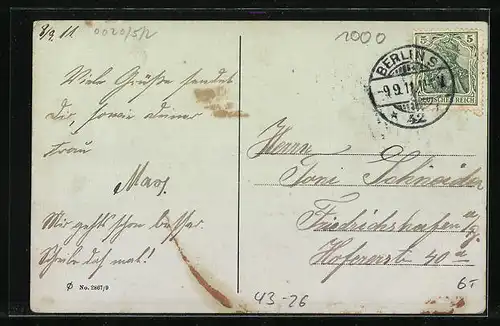 8/9. 11
0020/5/2
1000
5 5
DEUTSCHES REICH
BERLIN S.
-9.9.11
* 42
Viele Grüße sendet
Dir, sowie deiner
Frau
Max.
Mir geht's schon besser.
Schreibe doch mal!
Herrn
Toni Schneider
Friedrichshafen a/
Hofenerstr 40
Φ No. 2867/9
43-26